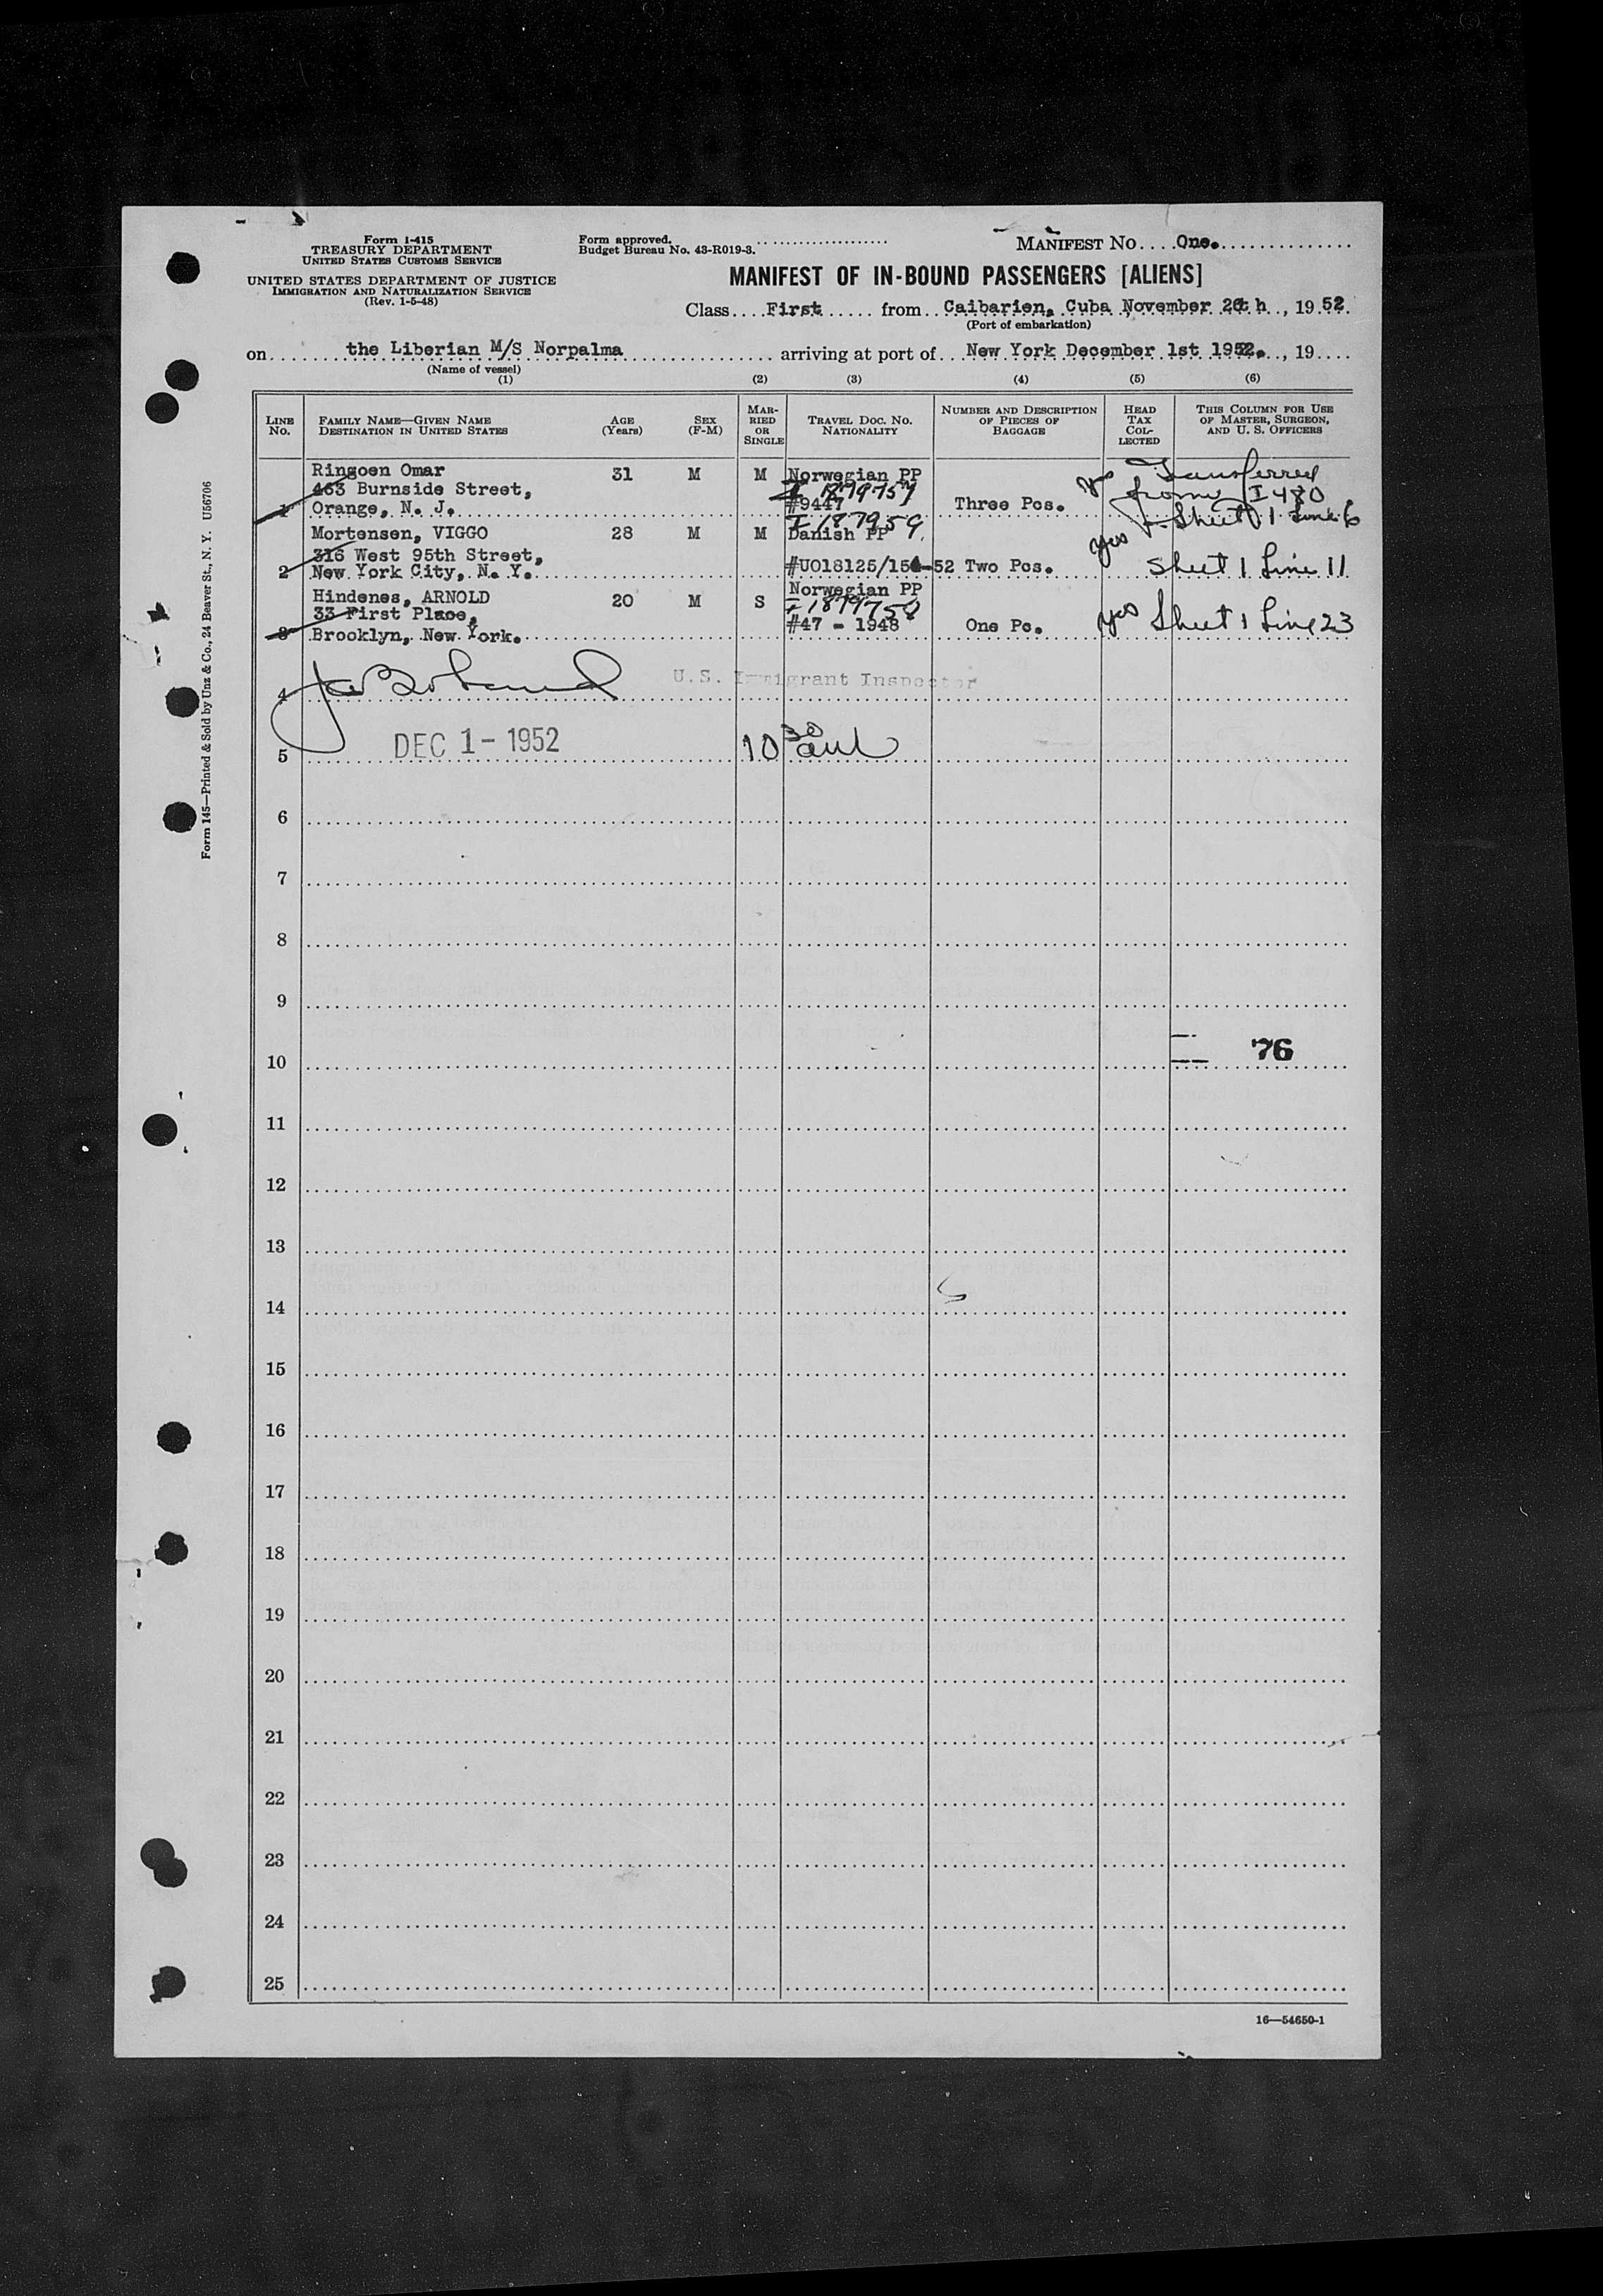 Form I-415
TREASURY DEPARTMENT
UNITED STATES CUSTOMS SERVICE
UNITED STATES DEPARTMENT OF JUSTICE
IMMIGRATION AND NATURALIZATION SERVICE
(Rev. 1-5-48)
Form approved.
Budget Bureau No. 43-R019-3.
MANIFEST No....One.
MANIFEST OF IN-BOUND PASSENGERS [ALIENS]
Class....First..... from...Caibarien, Cuba November 26th, 1952.
(Port of embarkation)
on.......the Liberian M/S Norpalma.......arriving at port of...New York December 1st 1952..., 19....
(Name of vessel)
(1) (2) (3) (4) (5) (6)
LINE No. FAMILY NAME—GIVEN NAME DESTINATION IN UNITED STATES AGE (Years) SEX (F-M) MARRIED OR SINGLE TRAVEL DOC. NO. NATIONALITY NUMBER AND DESCRIPTION OF PIECES OF BAGGAGE HEAD TAX COLLECTED THIS COLUMN FOR USE OF MASTER, SURGEON, AND U. S. OFFICERS
Ringoen Omar 31 M M Norwegian PP Transferred
463 Burnside Street, from I 480
1 Orange, N. J. #9447 Three Pcs. Sheet 1 Line 6
Mortensen, VIGGO 28 M M Danish PP yes
316 West 95th Street,
2 New York City, N. Y. #U018125/154-52 Two Pcs. Sheet 1 Line 11
Hindenes, ARNOLD 20 M S Norwegian PP
33 First Place, I 1879758
3 Brooklyn, New York. #47 - 1948 One Pc. yes Sheet 1 Line 23
4 U.S. Immigrant Inspector
5 DEC 1 - 1952 10 30 am
6
7
8
9
10 76
11
12
13
14
15
16
17
18
19
20
21
22
23
24
25
16—54650-1
Form 145—Printed & Sold by Unz & Co., 24 Beaver St., N. Y. U56706